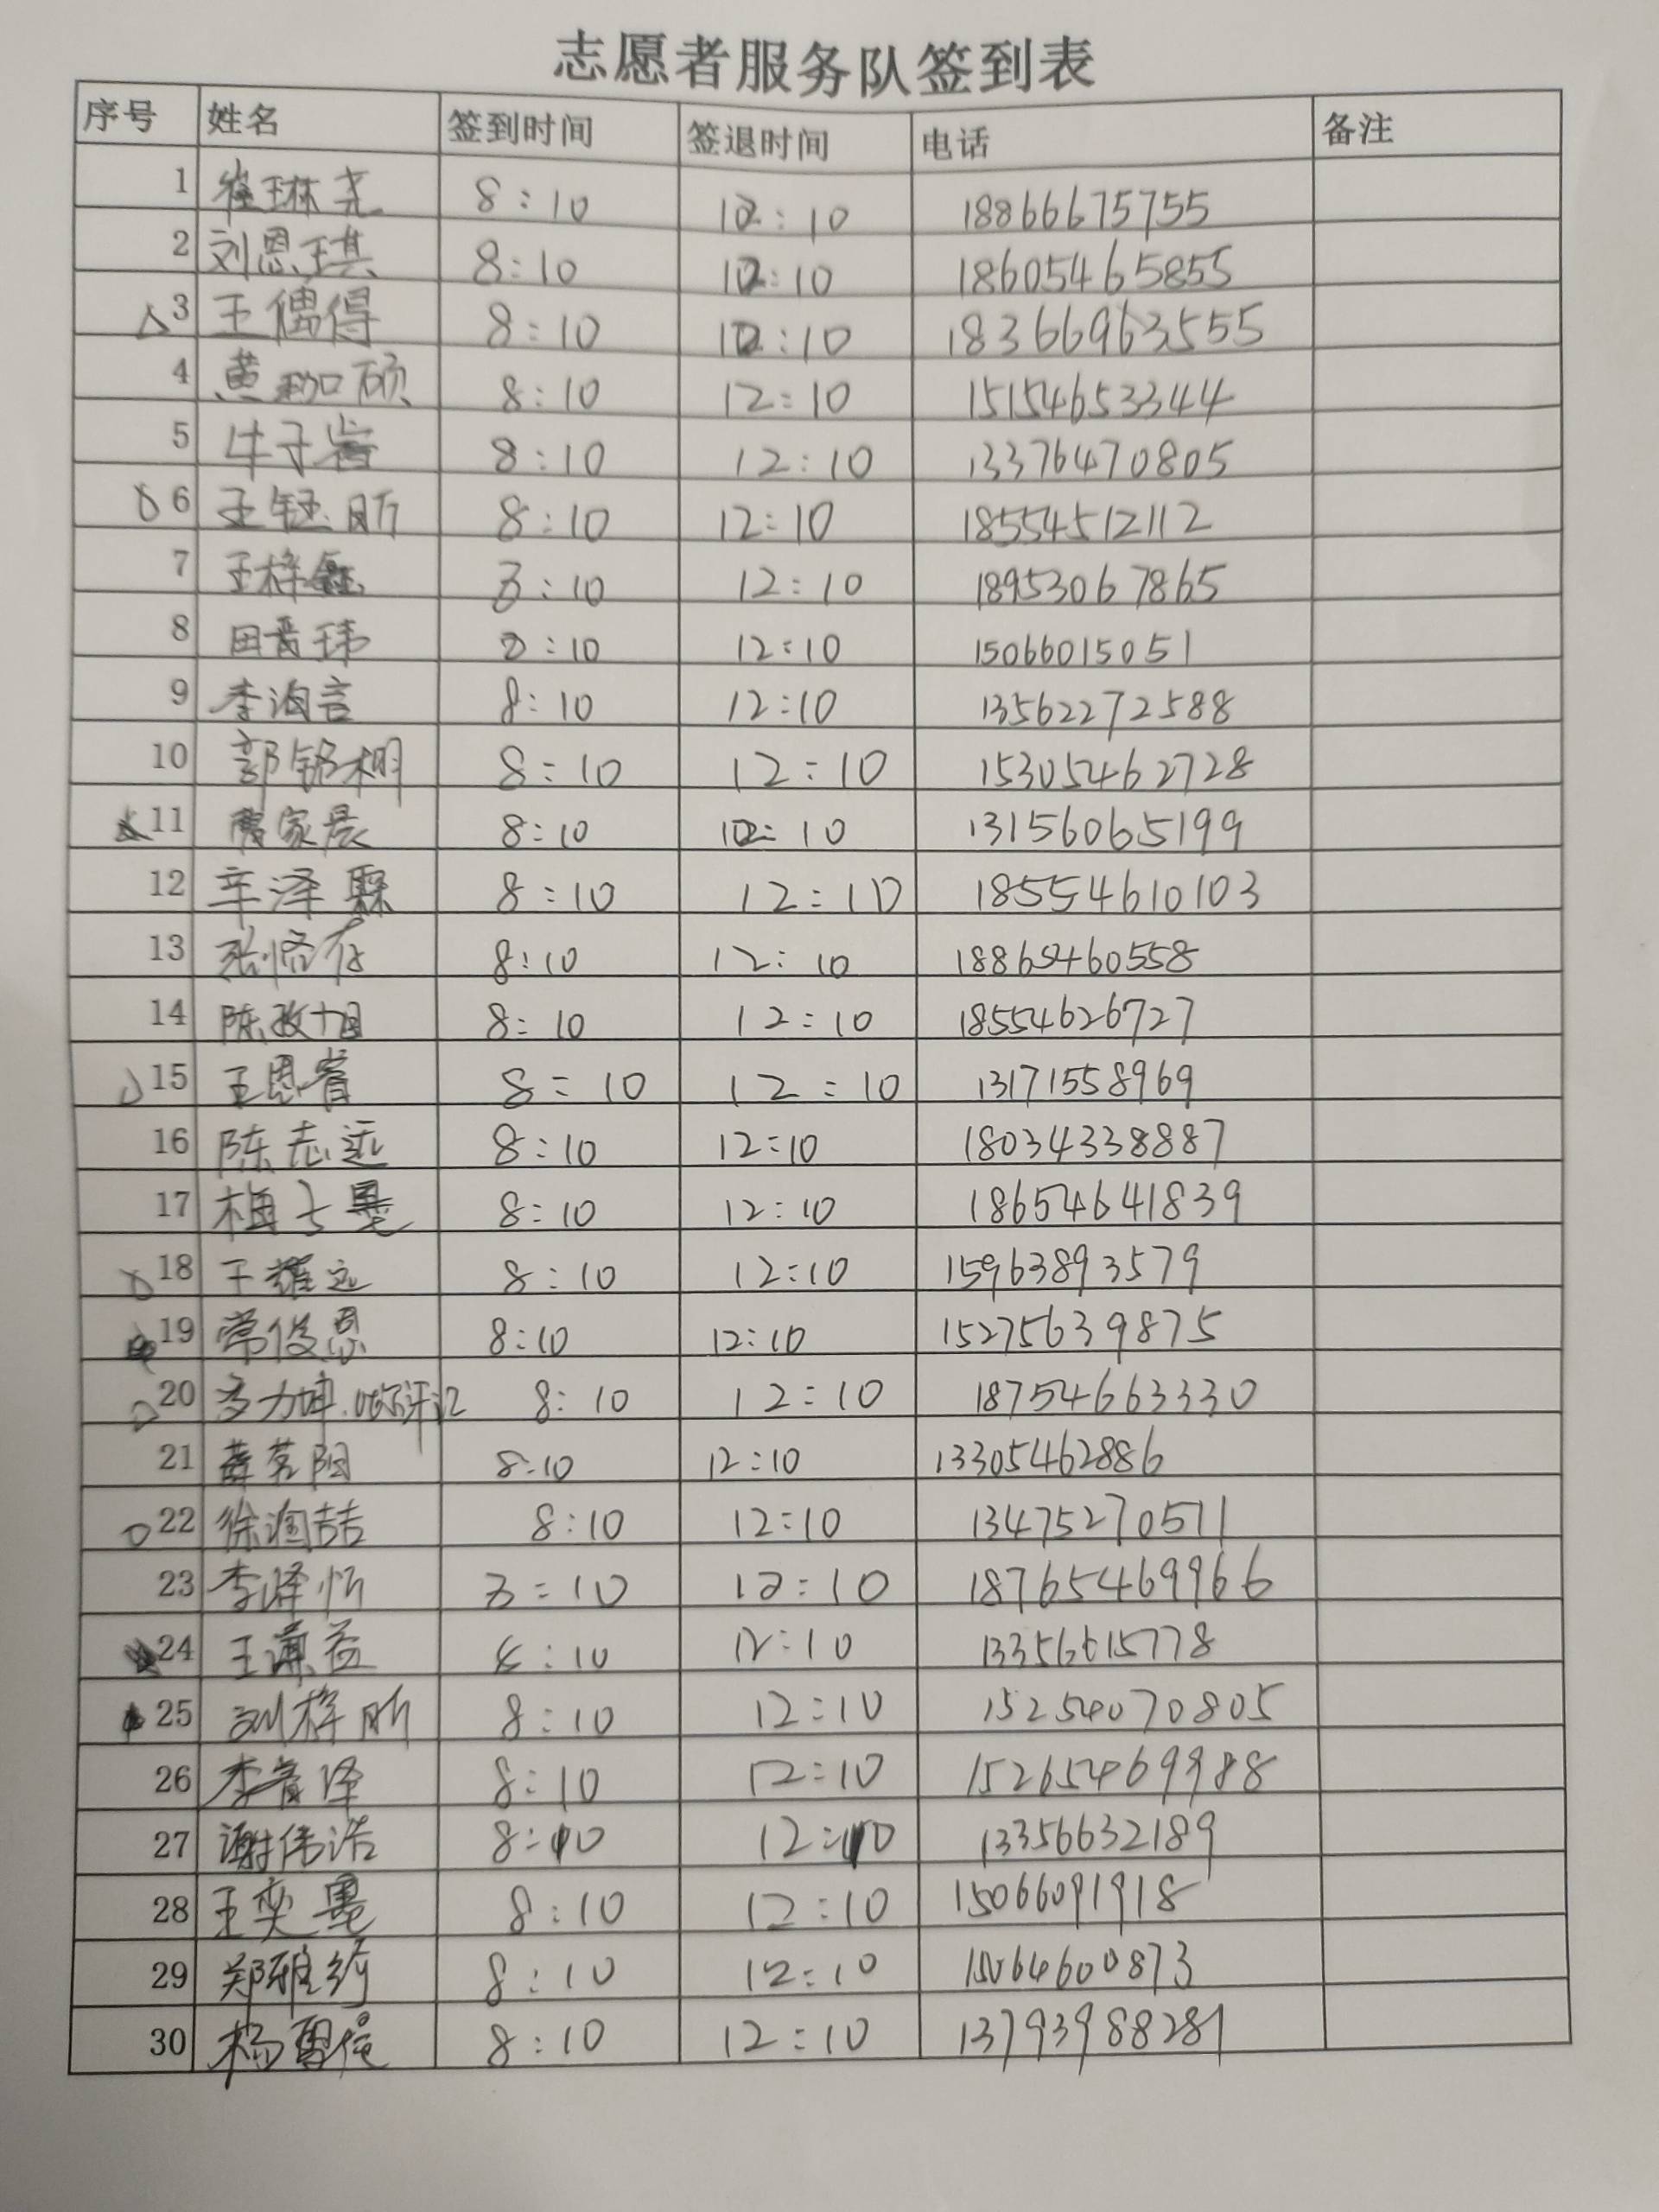 志愿者服务队签到表
序号 姓名 签到时间 签退时间 电话 备注
1 崔琳尧 8:10 12:10 18866675755
2 刘恩琪 8:10 12:10 18605465855
3 王儒得 8:10 12:10 18366963555
4 黄珈硕 8:10 12:10 15154653344
5 牛子 8:10 12:10 13376470805
6 王钰昕 8:10 12:10 18554512112
7 王梓鈺 8:10 12:10 18953067865
8 田晋玮 8:10 12:10 15066015051
9 李洵言 8:10 12:10 13562272588
10 郭铭棚 8:10 12:10 15305462728
11 家晨 8:10 12:10 13156065199
12 辛泽 8:10 12:10 18554610103
13 张恪存 8:10 12:10 18865460558
14 陈政旭 8:10 12:10 18554626727
15 王恩睿 8:10 12:10 13171558969
16 陈志远 8:10 12:10 18034338887
17 梅子墨 8:10 12:10 18654641839
18 王耀远 8:10 12:10 15963893579
19 常俊恩 8:10 12:10 15275639875
20 多力坤 8:10 12:10 18754663330
21 薛茗阳 8:10 12:10 13305462886
22 徐润喆 8:10 12:10 13475270511
23 李泽忻 8:10 12:10 18765469966
24 王谦益 8:10 12:10 13356615778
25 刘梓昕 8:10 12:10 15254070805
26 李睿泽 8:10 12:10 15265469988
27 谢伟浩 8:10 12:10 13356632189
28 王奕墨 8:10 12:10 15066091918
29 郑雅绮 8:10 12:10 15064600873
30 杨 8:10 12:10 13793988281